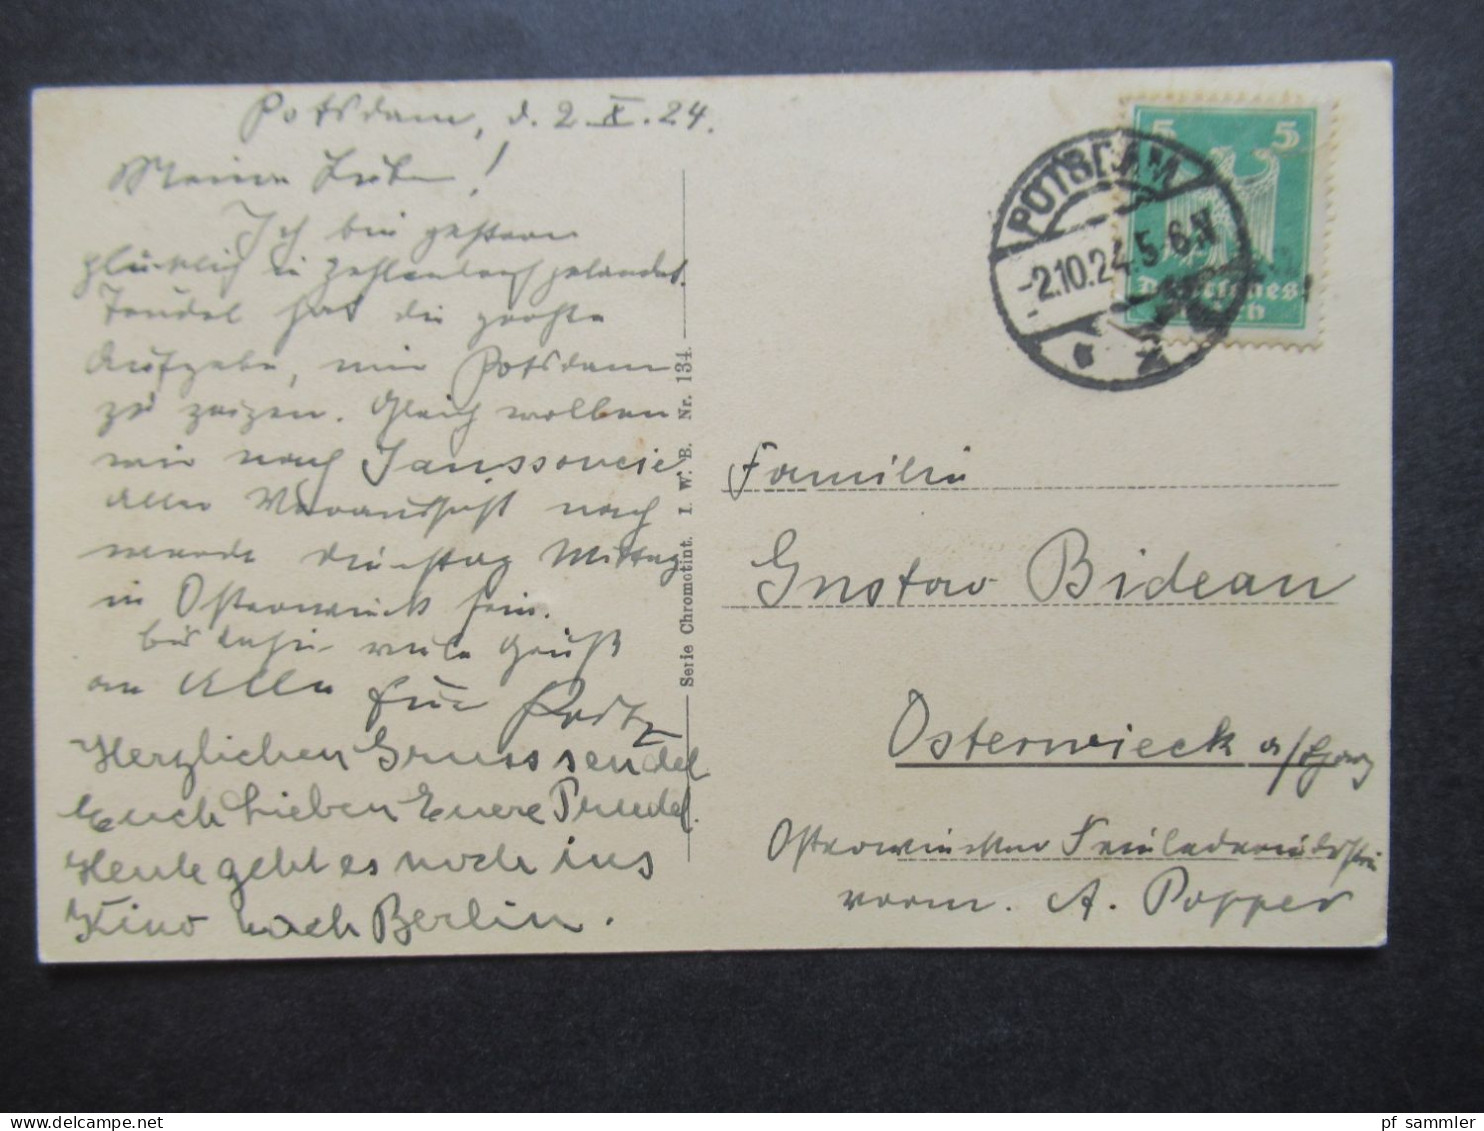 Potsdam, d. 2.X.24.
Meine Lieben!
Ich bin gestern
glücklich in Zehlendorf gelandet.
Trudel hat die größte
Aufgabe, mir Potsdam
zu zeigen. Gleich wollen
wir nach Sanssoucie
Aller Voraussicht nach
werde Dienstag Mittag
in Osterwieck sein.
Bis dahin viele Grüße
an Alle
Herzlichen Gruss sendet
Euch Lieben Eure Trudel.
Heute geht es noch ins
Kino nach Berlin.
Serie Chromotint. I. W. B. Nr. 134.
POTSDAM
-2.10.24.5-6N
5 5
Deutsches
Reich
Familie
Gustav Bideau
Osterwieck a/Harz
Osterwiecker
vorm. A. Popper
pf sammler